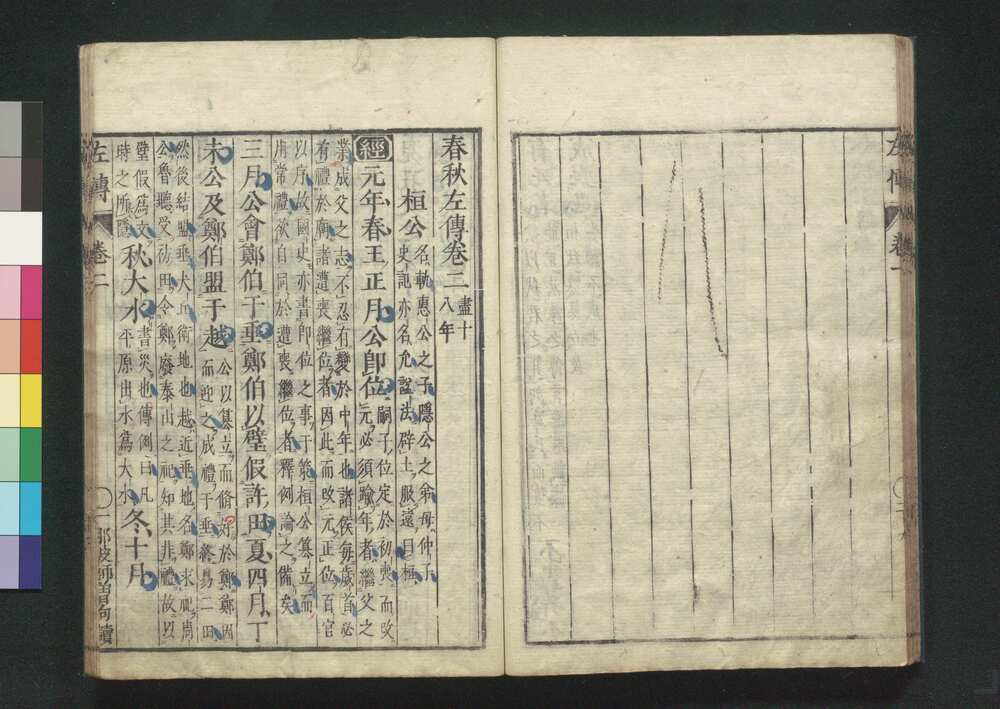 左傳 卷一
春秋左傳卷二 盡十八年
桓公 名軌惠公之子隱公之弟母仲子
史記亦名允謚法辟土服遠曰桓
經元年春王正月公卽位 嗣子位定於初喪而改
元必須踰年者繼父之
業成父之志不忍有變於中年也諸侯每歲首必
有禮於廟諸遭喪繼位者因此而改元正位百官
以序故國史亦書卽位之事于策桓公篡立而
用常禮欲自同於遭喪繼位者釋例論之備矣
三月公會鄭伯于垂鄭伯以璧假許田夏四月丁
未公及鄭伯盟于越 公以篡立而脩好於鄭鄭因
而迎之成禮于垂終易二田
然後結盟垂犬丘衛地也越近垂地名鄭求祀周
公魯聽受祊田令鄭廢泰山之祀知其非禮故以
璧假爲文
時之所隱 秋大水 書災也傳例曰凡
平原出水爲大水 冬十月
左傳 卷二 〇一 那波師曾句讀